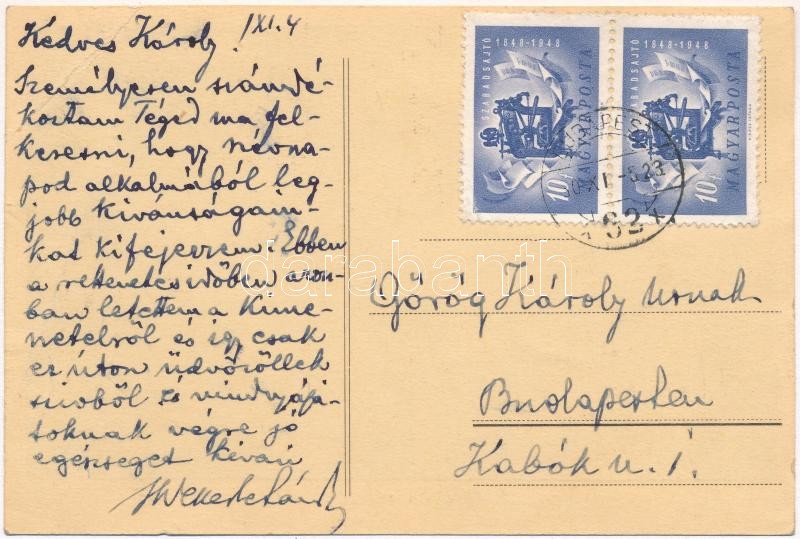 Kedves Károly! XI. 4
Személyesen szándé-
koztam Téged ma fel-
keresni, hogy névna-
pod alkalmából leg-
jobb kivánságaim-
kat kifejezzem. Ebben
a rettenetes időben azon-
ban letettem a kime-
netelről és igy csak
ez úton üdvözöllek
szivből és mindnyájá-
toknak végre jó
egészséget kíván
SZABADSAJTÓ 1848-1948
MAGYAR POSTA
10f
SZABADSAJTÓ 1848-1948
MAGYAR POSTA
10f
BUDAPEST
62
darabanth
Görög Károly Urnak
Budapesten
Kabók u. 1.